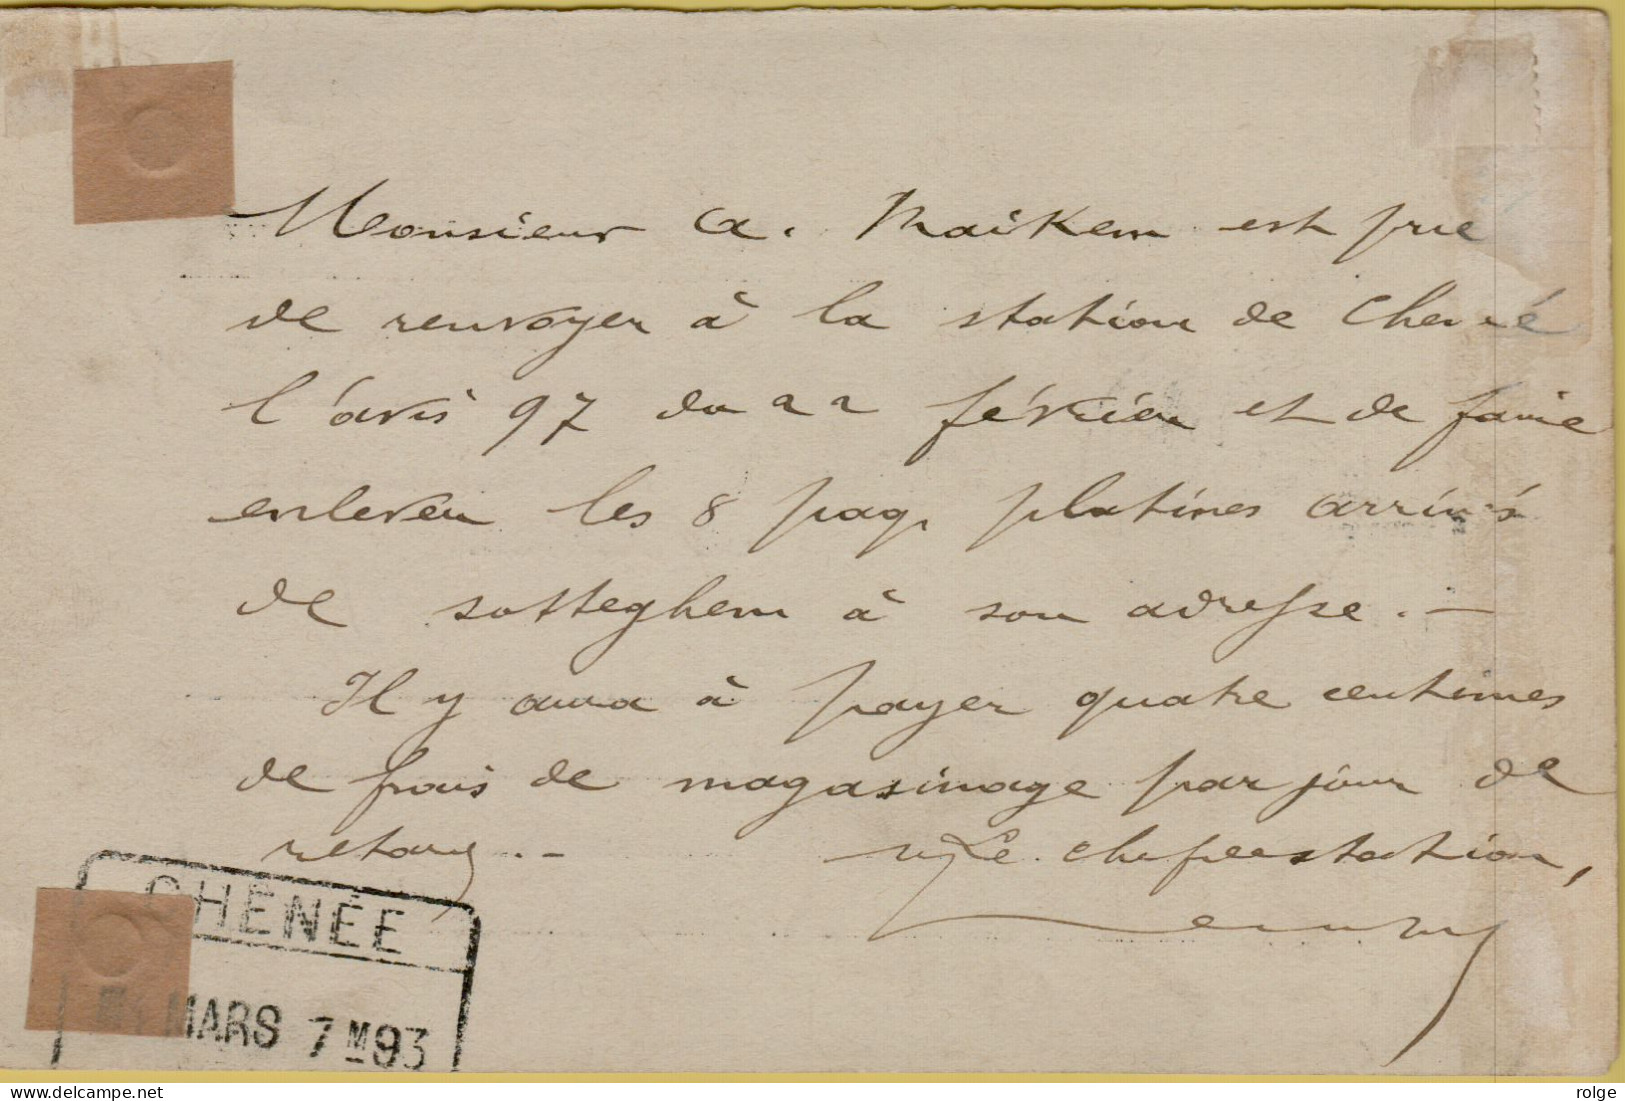 Monsieur A. Maikem est prié
de renvoyer à la station de Chenée
l'avis 97 du 22 février et de faire
enlever les 8 paq. platines arrivés
de Sotteghem à son adresse. —
Il y aura à payer quatre centimes
de frais de magasinage par jour de
retard. —
Le chef de station,
CHENÉE
MARS 7 M 93
delcampe.net
rolge